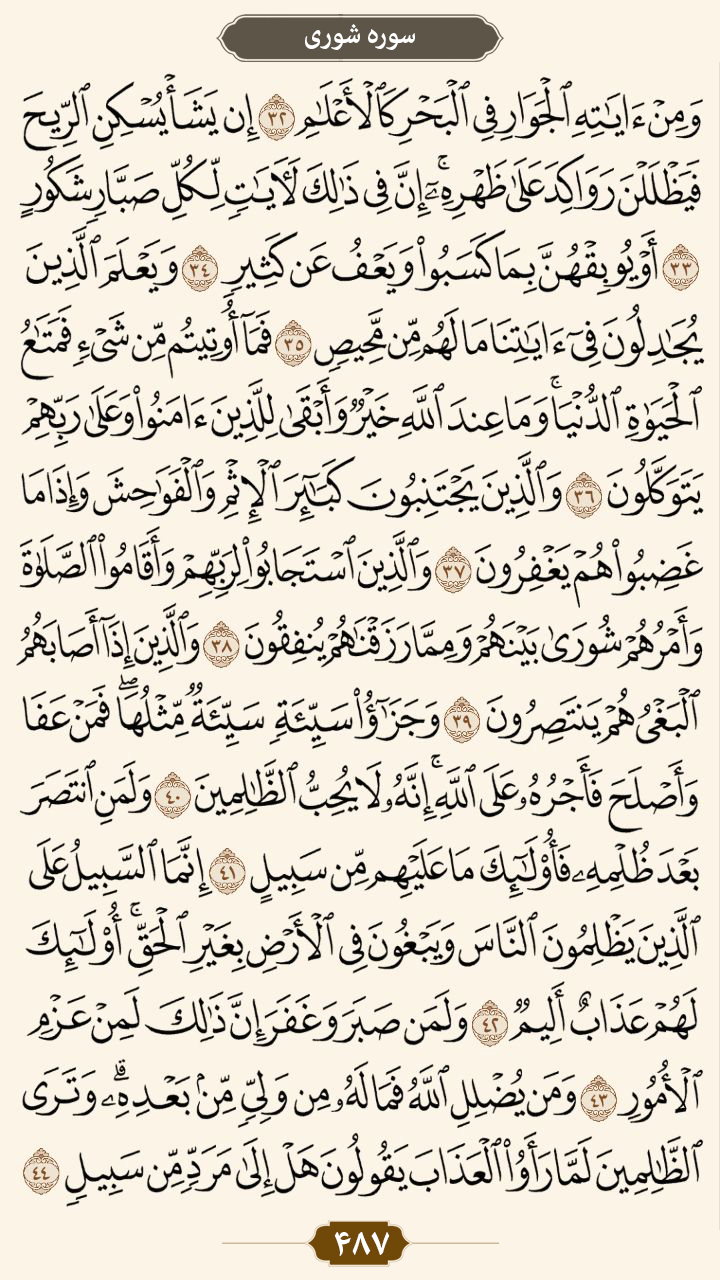 سوره شوری
وَمِنْ ءَايَٰتِهِ ٱلْجَوَارِ فِى ٱلْبَحْرِ كَٱلْأَعْلَٰمِ ٣٢ إِن يَشَأْ يُسْكِنِ ٱلرِّيحَ
فَيَظْلَلْنَ رَوَاكِدَ عَلَىٰ ظَهْرِهِۦٓ ۚ إِنَّ فِى ذَٰلِكَ لَءَايَٰتٍ لِّكُلِّ صَبَّارٍ شَكُورٍ
٣٣ أَوْ يُوبِقْهُنَّ بِمَا كَسَبُوا۟ وَيَعْفُ عَن كَثِيرٍ ٣٤ وَيَعْلَمَ ٱلَّذِينَ
يُجَٰدِلُونَ فِىٓ ءَايَٰتِنَا مَا لَهُم مِّن مَّحِيصٍ ٣٥ فَمَآ أُوتِيتُم مِّن شَىْءٍ فَمَتَٰعُ
ٱلْحَيَوٰةِ ٱلدُّنْيَا ۚ وَمَا عِندَ ٱللَّهِ خَيْرٌ وَأَبْقَىٰ لِلَّذِينَ ءَامَنُوا۟ وَعَلَىٰ رَبِّهِمْ
يَتَوَكَّلُونَ ٣٦ وَٱلَّذِينَ يَجْتَنِبُونَ كَبَٰٓئِرَ ٱلْإِثْمِ وَٱلْفَوَٰحِشَ وَإِذَا مَا
غَضِبُوا۟ هُمْ يَغْفِرُونَ ٣٧ وَٱلَّذِينَ ٱسْتَجَابُوا۟ لِرَبِّهِمْ وَأَقَامُوا۟ ٱلصَّلَوٰةَ
وَأَمْرُهُمْ شُورَىٰ بَيْنَهُمْ وَمِمَّا رَزَقْنَٰهُمْ يُنفِقُونَ ٣٨ وَٱلَّذِينَ إِذَآ أَصَابَهُمُ
ٱلْبَغْىُ هُمْ يَنتَصِرُونَ ٣٩ وَجَزَٰٓؤُا۟ سَيِّئَةٍ سَيِّئَةٌ مِّثْلُهَا ۖ فَمَنْ عَفَا
وَأَصْلَحَ فَأَجْرُهُۥ عَلَى ٱللَّهِ ۚ إِنَّهُۥ لَا يُحِبُّ ٱلظَّٰلِمِينَ ٤٠ وَلَمَنِ ٱنتَصَرَ
بَعْدَ ظُلْمِهِۦ فَأُو۟لَٰٓئِكَ مَا عَلَيْهِم مِّن سَبِيلٍ ٤١ إِنَّمَا ٱلسَّبِيلُ عَلَى
ٱلَّذِينَ يَظْلِمُونَ ٱلنَّاسَ وَيَبْغُونَ فِى ٱلْأَرْضِ بِغَيْرِ ٱلْحَقِّ ۚ أُو۟لَٰٓئِكَ
لَهُمْ عَذَابٌ أَلِيمٌ ٤٢ وَلَمَن صَبَرَ وَغَفَرَ إِنَّ ذَٰلِكَ لَمِنْ عَزْمِ
ٱلْأُمُورِ ٤٣ وَمَن يُضْلِلِ ٱللَّهُ فَمَا لَهُۥ مِن وَلِىٍّ مِّنۢ بَعْدِهِۦ ۗ وَتَرَى
ٱلظَّٰلِمِينَ لَمَّا رَأَوُا۟ ٱلْعَذَابَ يَقُولُونَ هَلْ إِلَىٰ مَرَدٍّ مِّن سَبِيلٍ ٤٤
۴۸۷